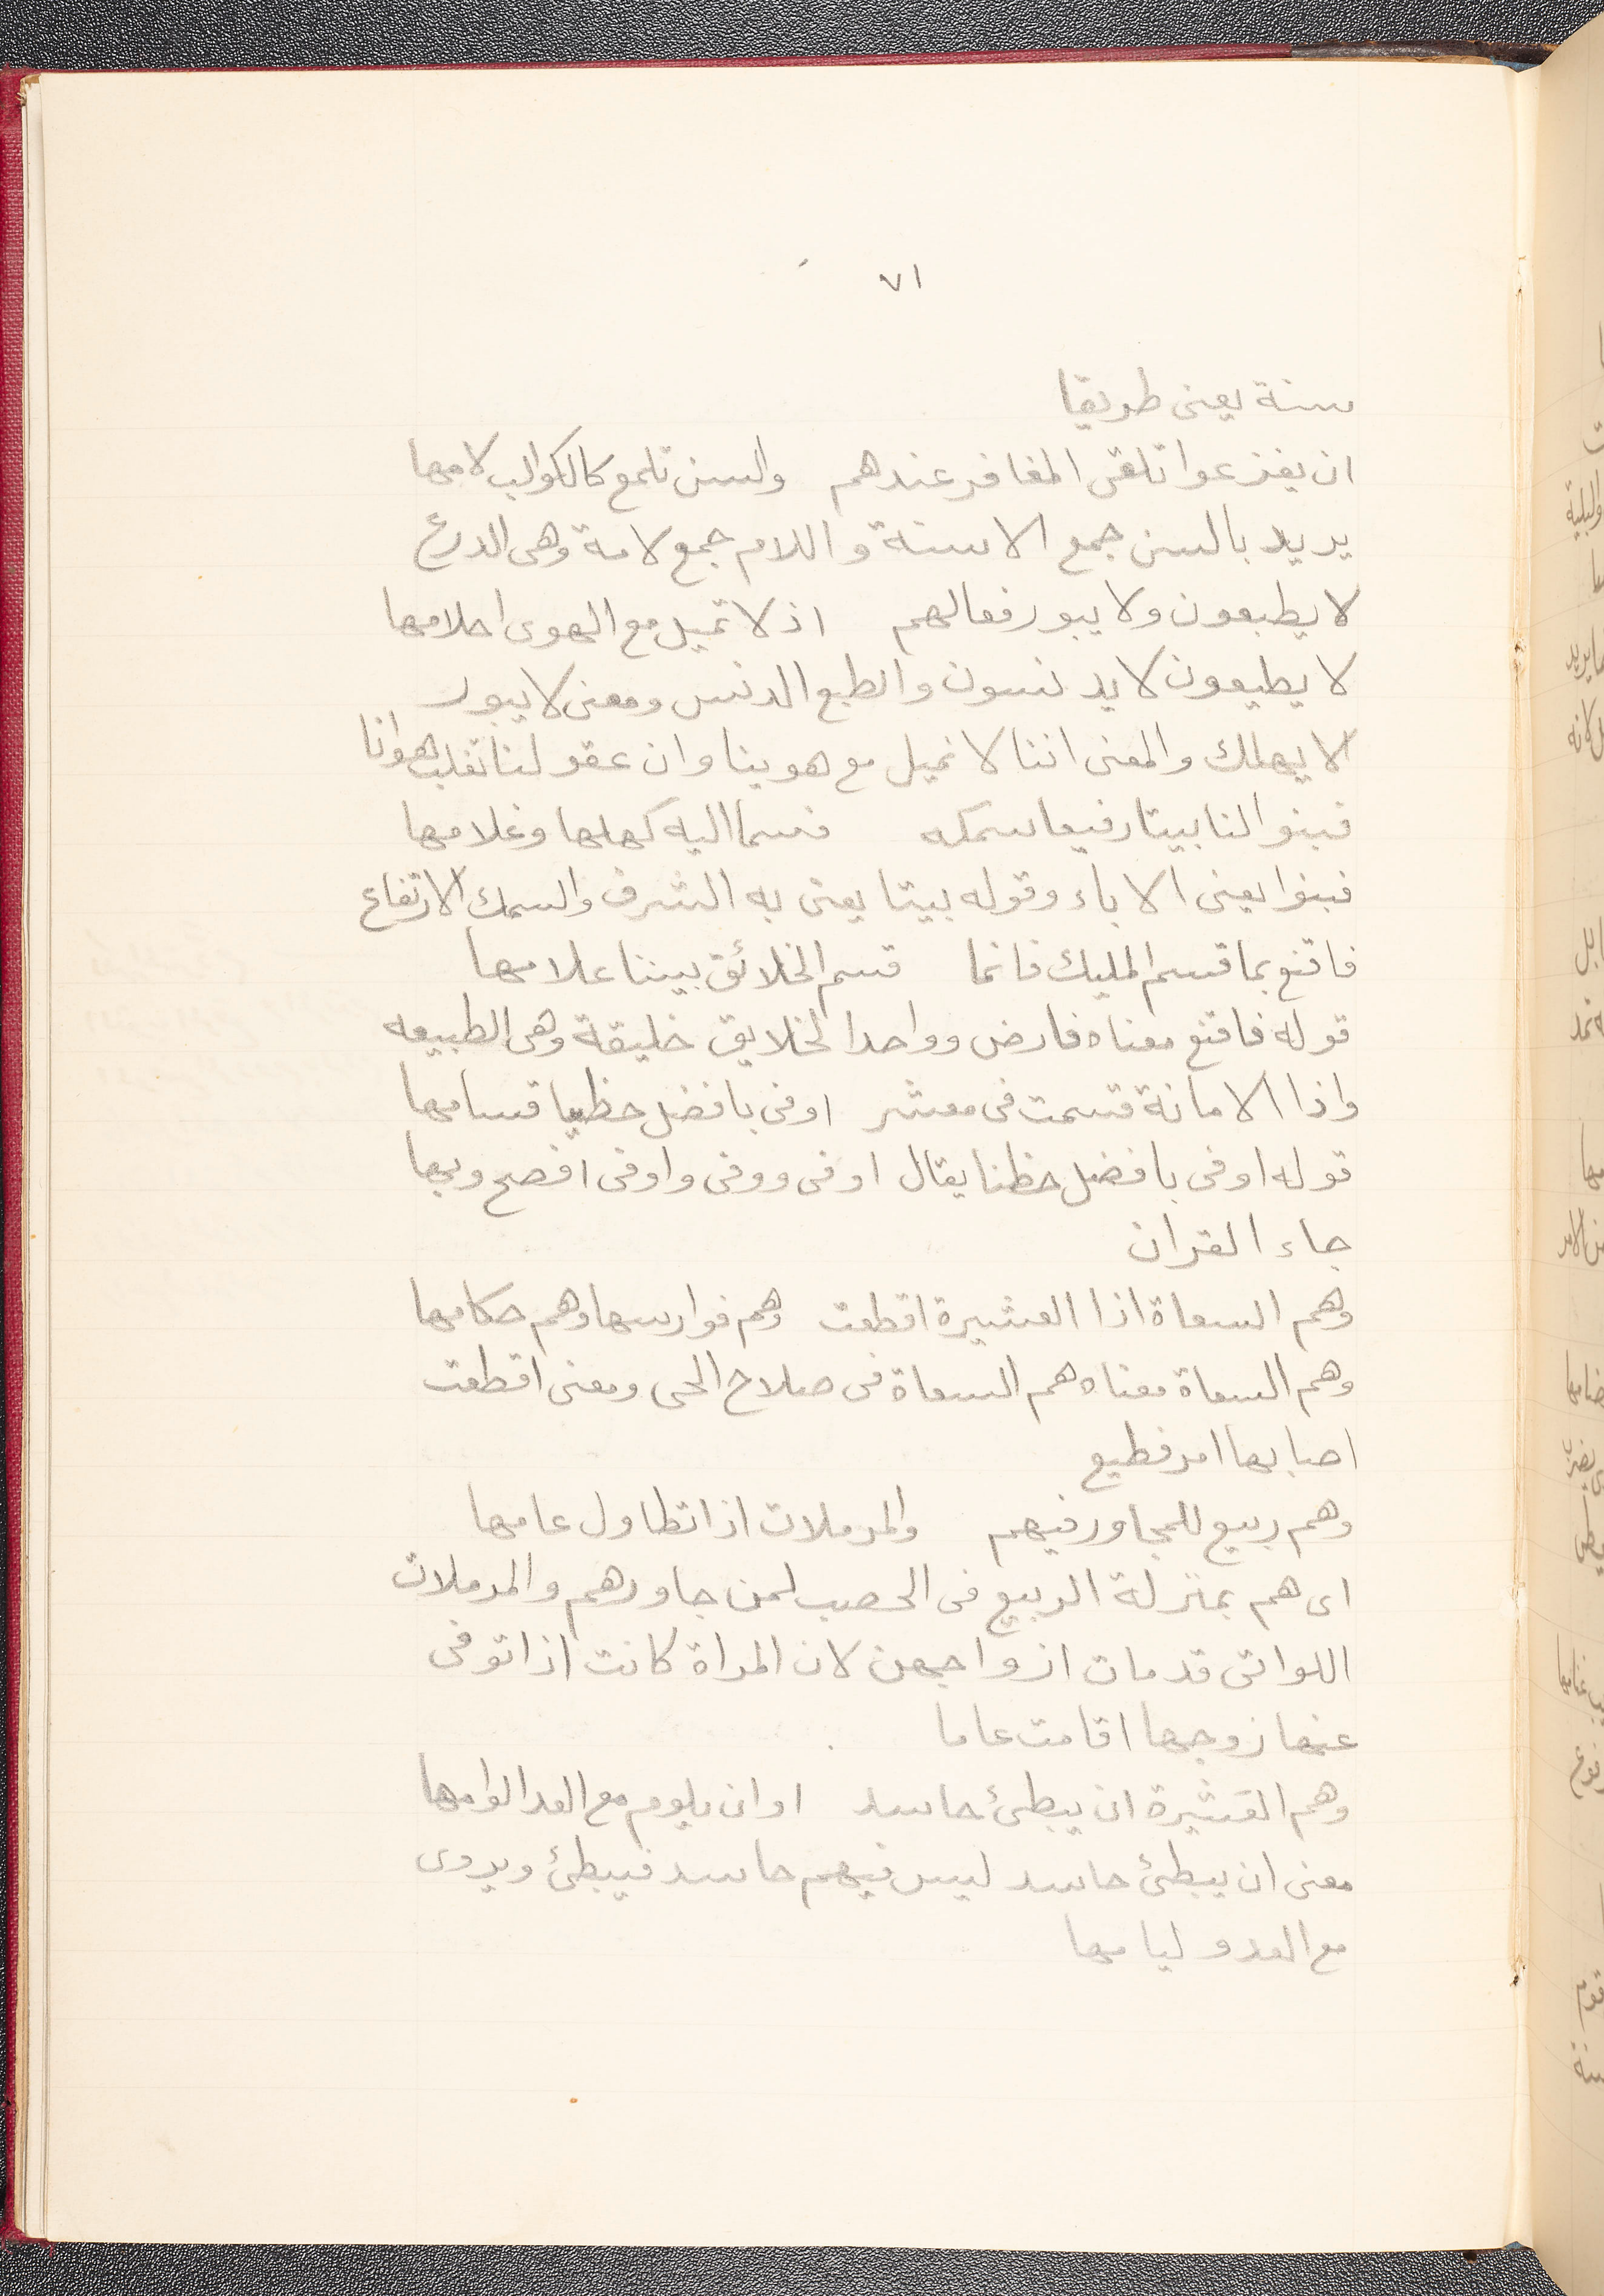 ٧١
سنة يعنى طريقا
ان يفزعوا تلقى المغافر عندهم والسن تلمع كالكواكب لامها
يريد بالسن جمع الاسنة واللام جمع لامة وهى الدرع
لا يطبعون ولا يبور فعالهم اذ لا تميل مع الهوى احلامها
لا يطيعون لا يدنسون والطبع الدنس ومعنى لا يبور
لا يهلك والمعنى اننا لا نميل مع هوينا وان عقولنا تغلب هوانا
فبنوا لنا بيتا رفيعا سمكه فسما اليه كهلها وغلامها
فبنوا يعنى الاباء وقوله بيتا يعنى به الشرف والسمك الارتفاع
فاقنع بما قسم المليك فانما قسم الخلائق بيننا علامها
قوله فاقنع معناه فارض وواحد الخلايق خليقة وهى الطبيعه
واذا الامانة قسمت فى معشر اوفى بافضل حظنا قسامها
قوله اوفى بافضل حظنا يقال اوفى ووفى واوفى افصح وبها
جاء القران
وهم السعاة اذا العشيرة اقطعت وهم فوارسها وهم حكامها
وهم السعاة معناه هم السعاة فى صلاح الحى ومعنى اقطعت
اصابها امر فطيع
وهم ربيع للمجاور فيهم والمرملات اذا تطاول عامها
اى هم بمنزلة الربيع فى الخصب لمن جاورهم والمرملات
اللواتى قد مات ازواجهن لان المراة كانت اذا توفى
عنها زوجها اقامت عاما
وهم العشيرة ان يبطئ حاسد او ان يلوم مع العدا لوامها
معنى ان يبطئ حاسد ليس فيهم حاسد فيبطئ ويروى
مع العدو ليامها